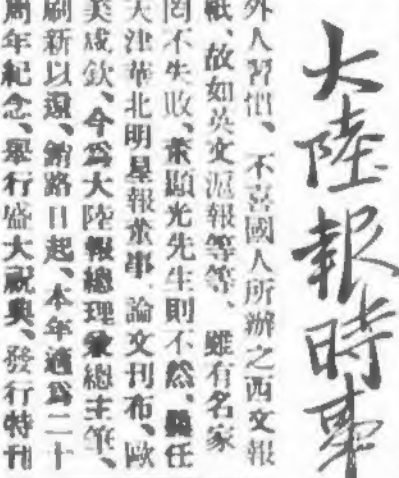 大陸報時事
外人習慣、不喜國人所辦之西文報
紙、故如英文滬報等等、雖有名家
罔不失敗、董顯光先生則不然、任
天津華北明星報董事、論文刊布、歐
美咸欽、今爲大陸報總理兼總主筆、
刷新以還、銷路日起、本年適爲二十
周年紀念、舉行盛大祝典、發行特刊